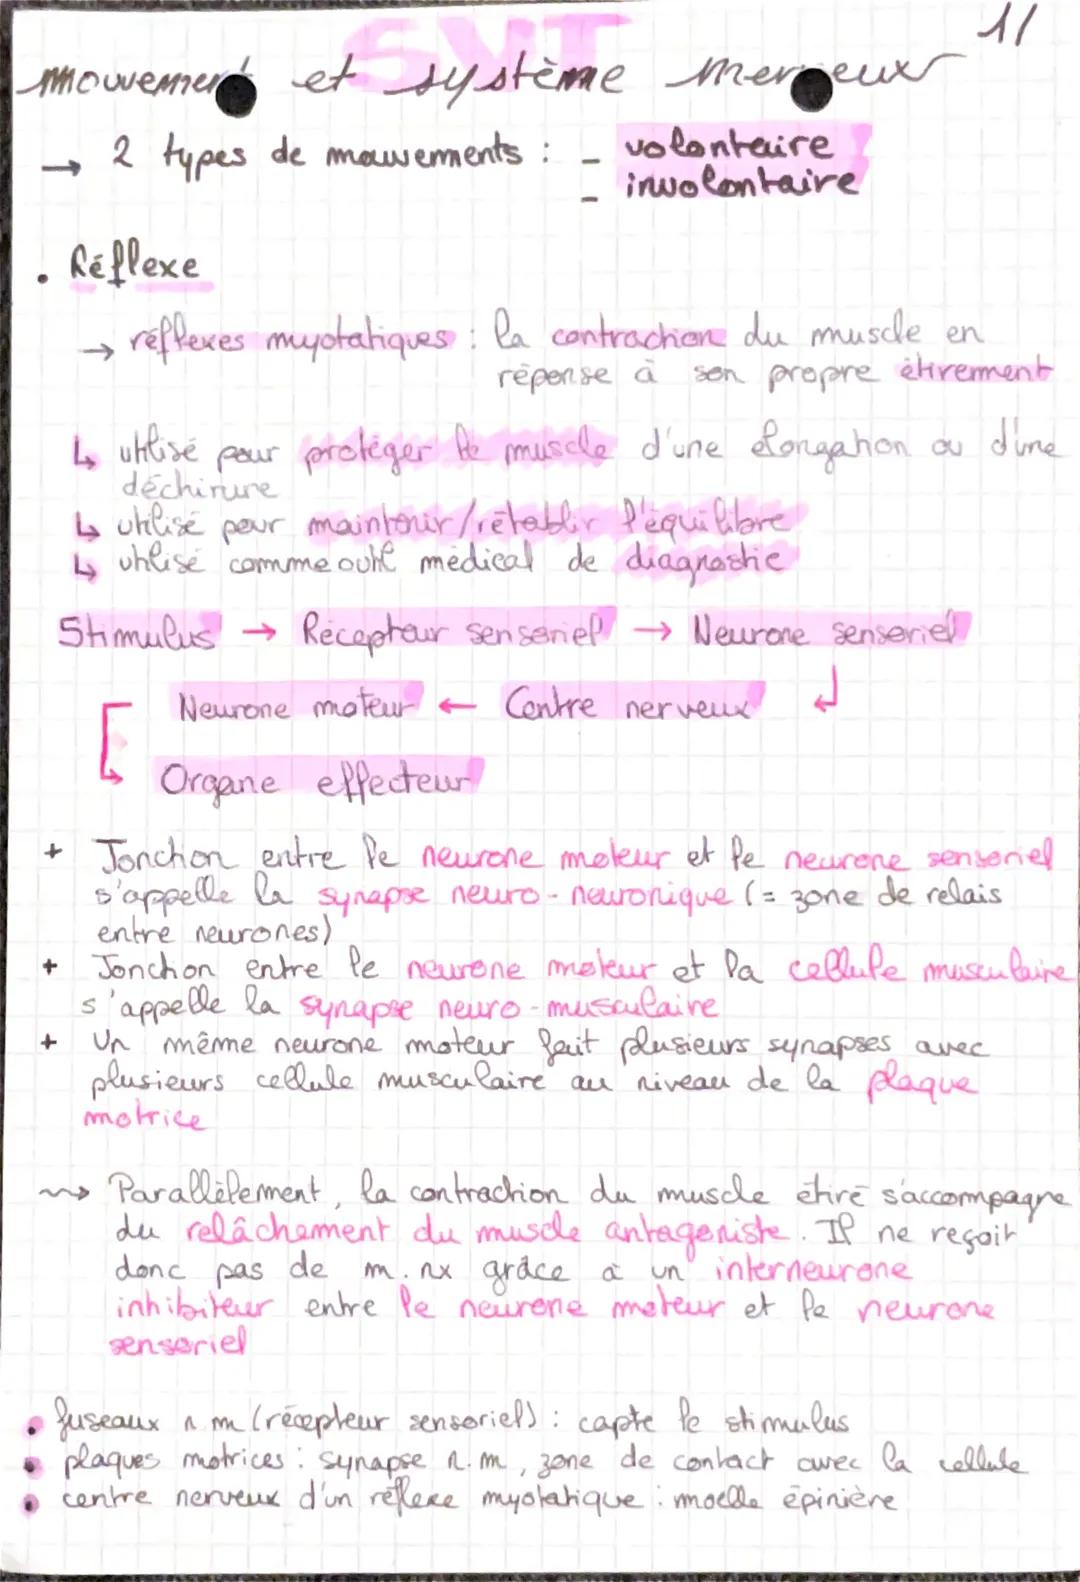 SVT
11
mouvement et système nerveux
→ 2 types de mouvements : - volontaire
- involontaire
. Réflexe
→ réflexes myotatiques : la contraction du muscle en
réponse à son propre étirement
↳ utilisé pour protéger le muscle d'une élongation ou d'une
déchirure
↳ utilisé pour maintenir/rétablir l'équilibre
↳ utilisé comme outil médical de diagnostic
Stimulus → Récepteur sensoriel → Neurone sensoriel
Neurone moteur ← Centre nerveux
Organe effecteur
+ Jonction entre le neurone moteur et le neurone sensoriel
s'appelle la synapse neuro-neuronique (= zone de relais
entre neurones)
+ Jonction entre le neurone moteur et la cellule musculaire
s'appelle la synapse neuro-musculaire
+ Un même neurone moteur fait plusieurs synapses avec
plusieurs cellule musculaire au niveau de la plaque
motrice
⇝ Parallèlement, la contraction du muscle étiré s'accompagne
du relâchement du muscle antagoniste. Il ne reçoit
donc pas de m.nx grâce à un interneurone
inhibiteur entre le neurone moteur et le neurone
sensoriel
• fuseaux n.m (récepteur sensoriel) : capte le stimulus
• plaques motrices : synapse n.m, zone de contact avec la cellule
• centre nerveux d'un réflexe myotatique : moelle épinière